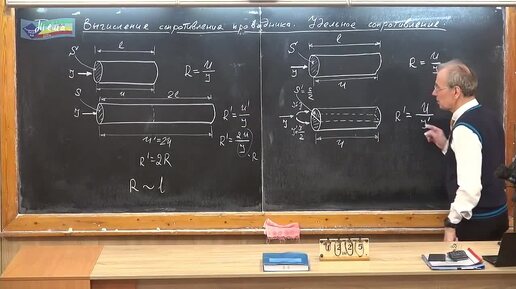 Вычисление сопротивления проводника. Удельное сопротивление.
l
S
I
U
R = U/I
2l
S
I
U'=2U
R' = U'/I
R' = 2U/I
R
R'=2R
R ~ l
l
S
I
U
R = U/I
S'=S/2
I
U
R' = U/I'